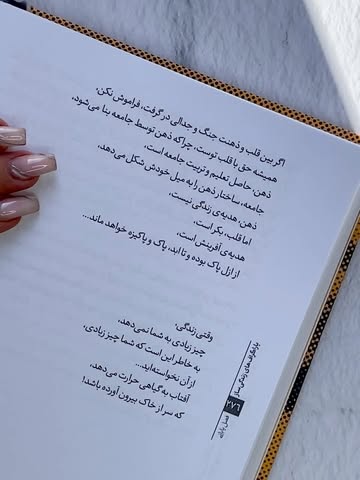 اگر بین قلب و ذهنت جنگ و جدالی در گرفت، فراموش نکن.
همیشه حق با قلب توست، چرا که ذهن توسط جامعه بنا می‌شود،
ذهن، حاصل تعلیم و تربیت جامعه است،
جامعه، ساختار ذهن را به میل خودش شکل می‌دهد،
ذهن، هدیه‌ی زندگی نیست،
اما قلب، بکر است،
هدیه‌ی آفرینش است،
از ازل پاک بوده و تا ابد، پاک و پاکیزه خواهد ماند...
وقتی زندگی،
چیز زیادی به شما نمی‌دهد،
به خاطر این است که شما چیز زیادی،
از آن نخواسته‌اید...
آفتاب به گیاهی حرارت می‌دهد،
که سر از خاک بیرون آورده باشد!
پاراگراف‌های زندگی‌ساز
۲۷۶